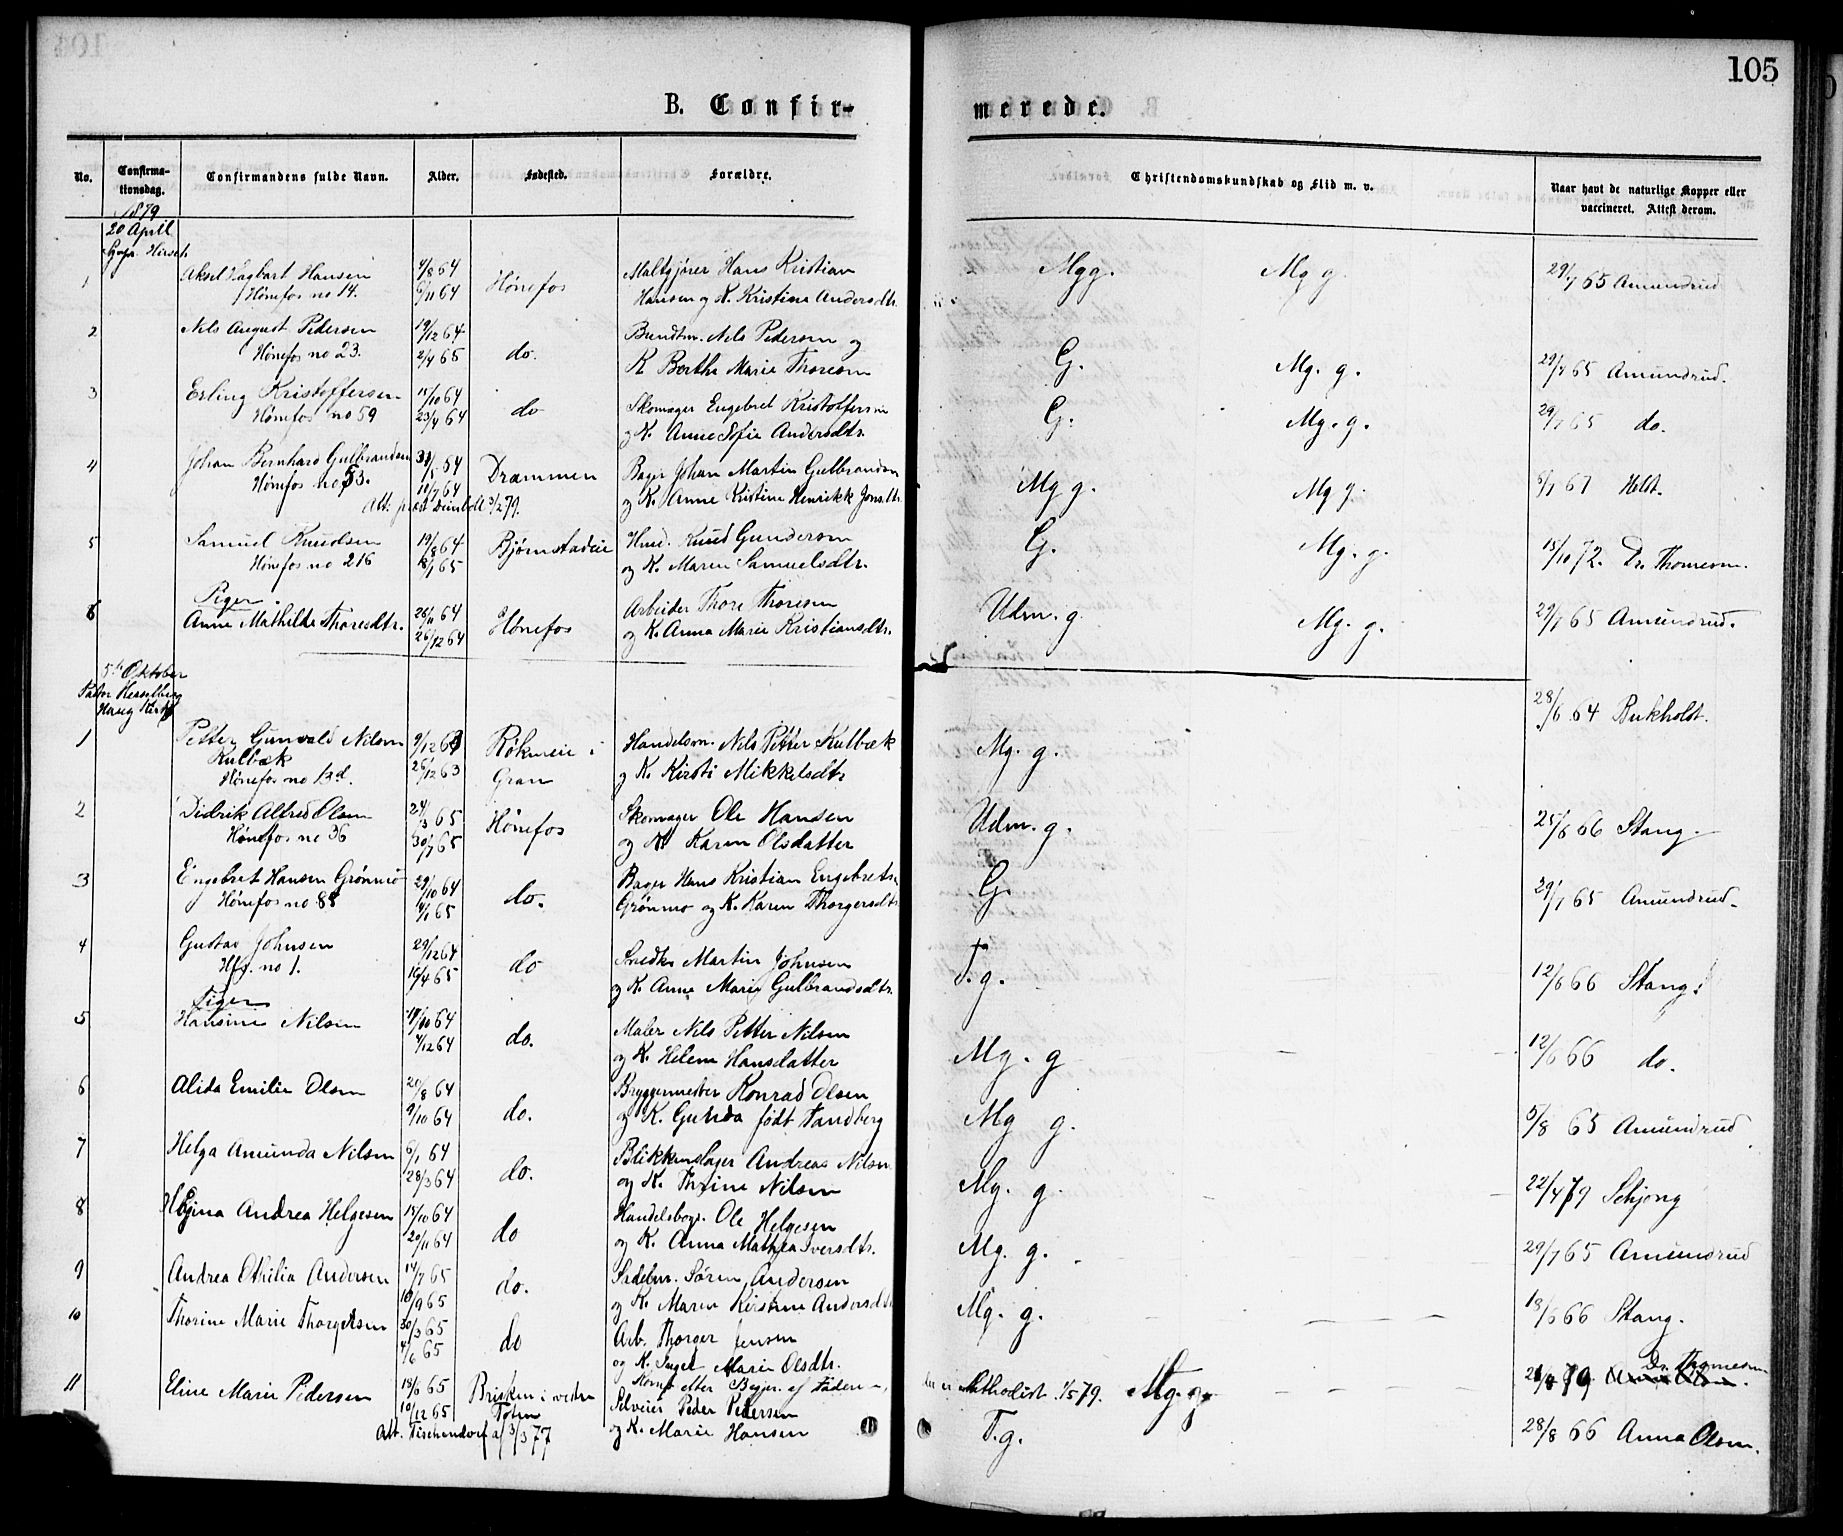 105
B. Confir-
merede.
No.
Confirma-
tionsdag.
Confirmandens fulde Navn.
Alder.
Fødested.
Forældre.
Christendomskundskab og Flid m. v.
Naar havt de naturlige Kopper eller
vaccineret. Attest derom.
1879
20 April
Hirsch
1 Aksel Dagbart Hansen 4/8 64 Hønefos Maltgjører Hans Kristian Mg g. Mg g. 29/7 65 Amundrud
Hønefos no 14. 6/11 64 Hansen og K. Kristine Andersdtr.
2 Nils August Pedersen 19/12 64 do. Bundtm. Nils Pedersen og G. Mg. g. 29/7 65 Amundrud.
Hønefos no 23. 2/4 65 K Berthe Marie Thoresen
3 Erling Kristoffersen 15/10 64 do Skomager Engebret Kristoffersen G. Mg. g. 29/7 65 do.
Hønefos no 59 23/4 64 og K. Anne Sofie Andersdtr.
4 Johan Bernhard Gulbrandsen 31/5 64 Drammen Bager Johan Martin Gulbrandsen Mg g. Mg g. 6/7 67 Helt.
Hønefos no 53. 10/7 64 og K. Anne Kristine Henrikk Jonsdtr.
Att. prest 3/2 79.
5 Samuel Knudsen 19/8 64 Bjørnstadeie Hmd. Knud Gundersen G. Mg. g. 15/10 72. Dr. Thomesen.
Hønefos no 216 8/1 65 og K. Maren Samuelsdtr.
Piger.
6 Anne Mathilde Thoresdtr. 26/11 64 Hønefos Arbeider Thore Thoresen Udm. g. Mg. g. 29/7 65 Amundrud.
26/12 64 og K. Anna Marie Kristiansdtr.
5te Oktober
Pastor Hesselberg
Haug Kirke
1 Petter Gunvald Nilsen 9/12 63 Røkneie i Handelsm. Nils Petter Kulbæk Mg. g. 28/6 64 Bukholdt.
Kulbæk
Hønefos no 26/12 63 Gran og K. Kirsti Mikkelsdtr
2 Didrik Alfred Olsen 24/3 65 Hønefos Skomager Ole Hansen Udm. g. 25/6 66 Stang.
Hønefos no 36 30/7 65 og K Karen Olsdatter
3 Engebret Hansen Grønmo 29/10 64 do. Bager Hans Kristian Engebrets. G. 29/7 65 Amundrud.
Hønefos no 88 4/1 65 Grønmo og K. Karen Thorgersdtr
4 Gustav Johnsen 29/12 64 do Snedker Martin Johnsen T. g. 12/6 66 Stang.
Hfs. no 1. 16/4 65 og K. Anne Marie Gulbrandsdtr.
Piger
5 Hansine Nilsen 18/10 64 do. Maler Nils Petter Nilsen Mg. g 12/6 66 do.
4/12 64 og K. Helene Hansdatter
6 Alida Emilie Olsen 20/8 64 do. Bryggermester Konrad Olsen Mg g. 5/8 65 Amundrud
9/10 64 og K. Gunda født Tandberg
7 Helga Amunda Nilsen 6/1 64 do. Blikkenslager Andreas Nilsen Mg. g. 22/4 79 Schjong
28/3 64 og K. Thrine Nilsen
8 Hegina Andrea Helgesen 15/10 64 do Handelsbogs. Ole Helgesen Mg. g. 29/7 65 Amundrud
20/11 64 og K. Anna Mathea Iversdtr.
9 Andrea Othilia Andersen 14/7 65 do. Sadelm. Søren Andersen Mg. g. 18/6 66 Stang.
10/9 65 og K. Maren Kirstine Andersdtr
10 Thorine Marie Thorgersen 30/3 65 do Arb. Thorger Jensen Methodist 1/5 79. Mg. g. 79 Dr. Thomesen
4/6 65 og K. Inger Marie Olsdtr.
Konf. etter Begjær. af Faderen,
11 Eline Marie Pedersen 18/6 65 Brisken i vestre Selveier Peder Pedersen T. g. 28/8 66 Anna Olsen.
10/12 65 Toten og K. Marie Hansen
Att. Tischendorf af 3/3 77